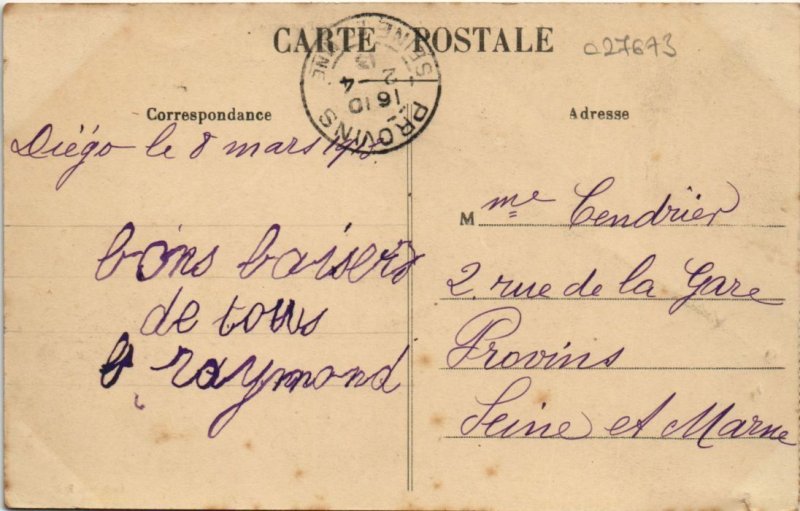 CARTE POSTALE
027673
PROVINS
SEINE ET MARNE
16 10
2 - 4
13
Correspondance
Adresse
Diégo le 8 mars
bons baisers
de tous
raymond
M me Cendrier
2, rue de la Gare
Provins
Seine et Marne